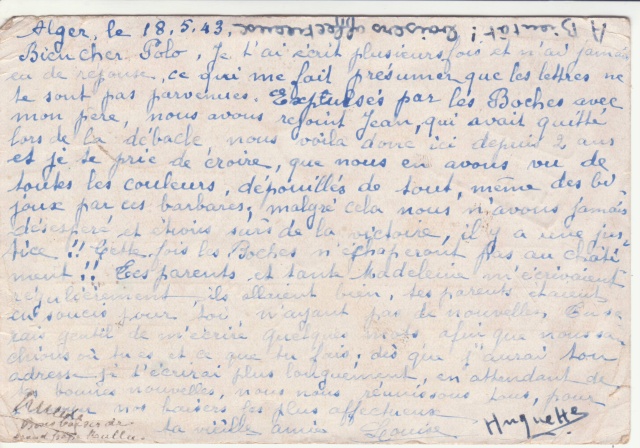 Alger, le 18.5.43.
A Bientôt! Baisers affectueux
Bien cher Polo, Je t'ai écrit plusieurs fois et n'ai jamais
eu de réponse, ce qui me fait présumer que les lettres ne
te sont pas parvenues. Expulsés par les Boches avec
mon père, nous avons rejoint Jean, qui avait quitté
lors de la débacle, nous voilà donc ici depuis 2 ans
et je te prie de croire, que nous en avons vu de
toutes les couleurs, dépouillés de tout, même des bi-
joux par ces barbares; malgré cela nous n'avons jamais
désespéré et étions sûrs de la victoire, il y a une jus-
tice!! Cette fois les Boches n'échaperont pas au châti-
ment!! Tes parents et tante Madeleine m'écrivaient
régulièrement ils allaient bien, tes parents étaient
en soucis pour toi n'ayant pas de nouvelles. Tu se-
rais gentil de m'écrire quelques mots afin que nous sa-
chions où tu es et ce que tu fais; dès que j'aurai ton
adresse je t'écrirai plus longuement, en attendant de
tes bonnes nouvelles, nous nous réunissons tous, pour
nos baisers les plus affectueux
ta vieille amie Louise
Huguette